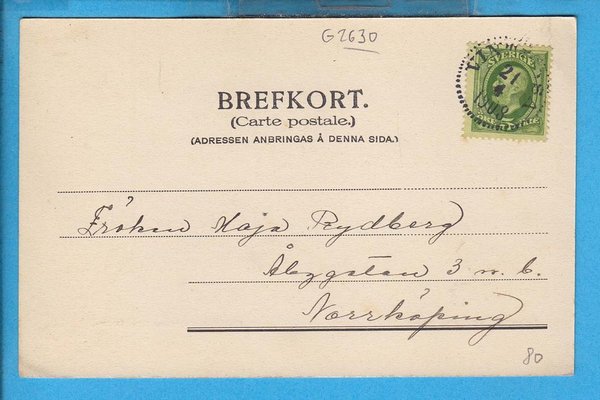 G2630
SVERIGE
21
4
1903
BREFKORT.
(Carte postale.)
(ADRESSEN ANBRINGAS Å DENNA SIDA.)
Fröken Maja Rydberg
Åbygatan 3 n. b.
Norrköping
80